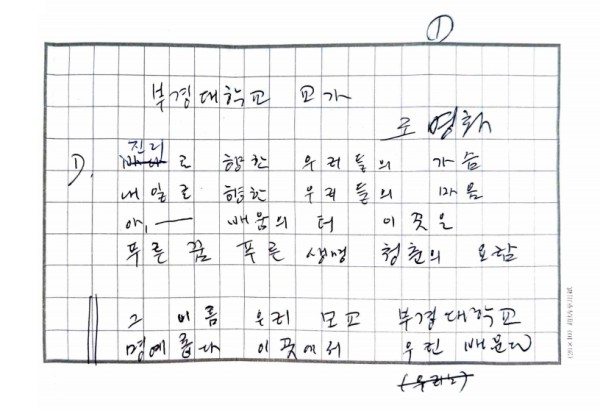 ①
부경대학교 교가
로 명화
1). 진리로 향한 우리들의 가슴
내일로 향한 우리들의 마음
아, ── 배움의 터 이 곳은
푸른 꿈 푸른 생명 청춘의 요람
그 이름 우리 모교 부경대학교
명예롭다 이 곳에서 우린 배운다
(우리는)